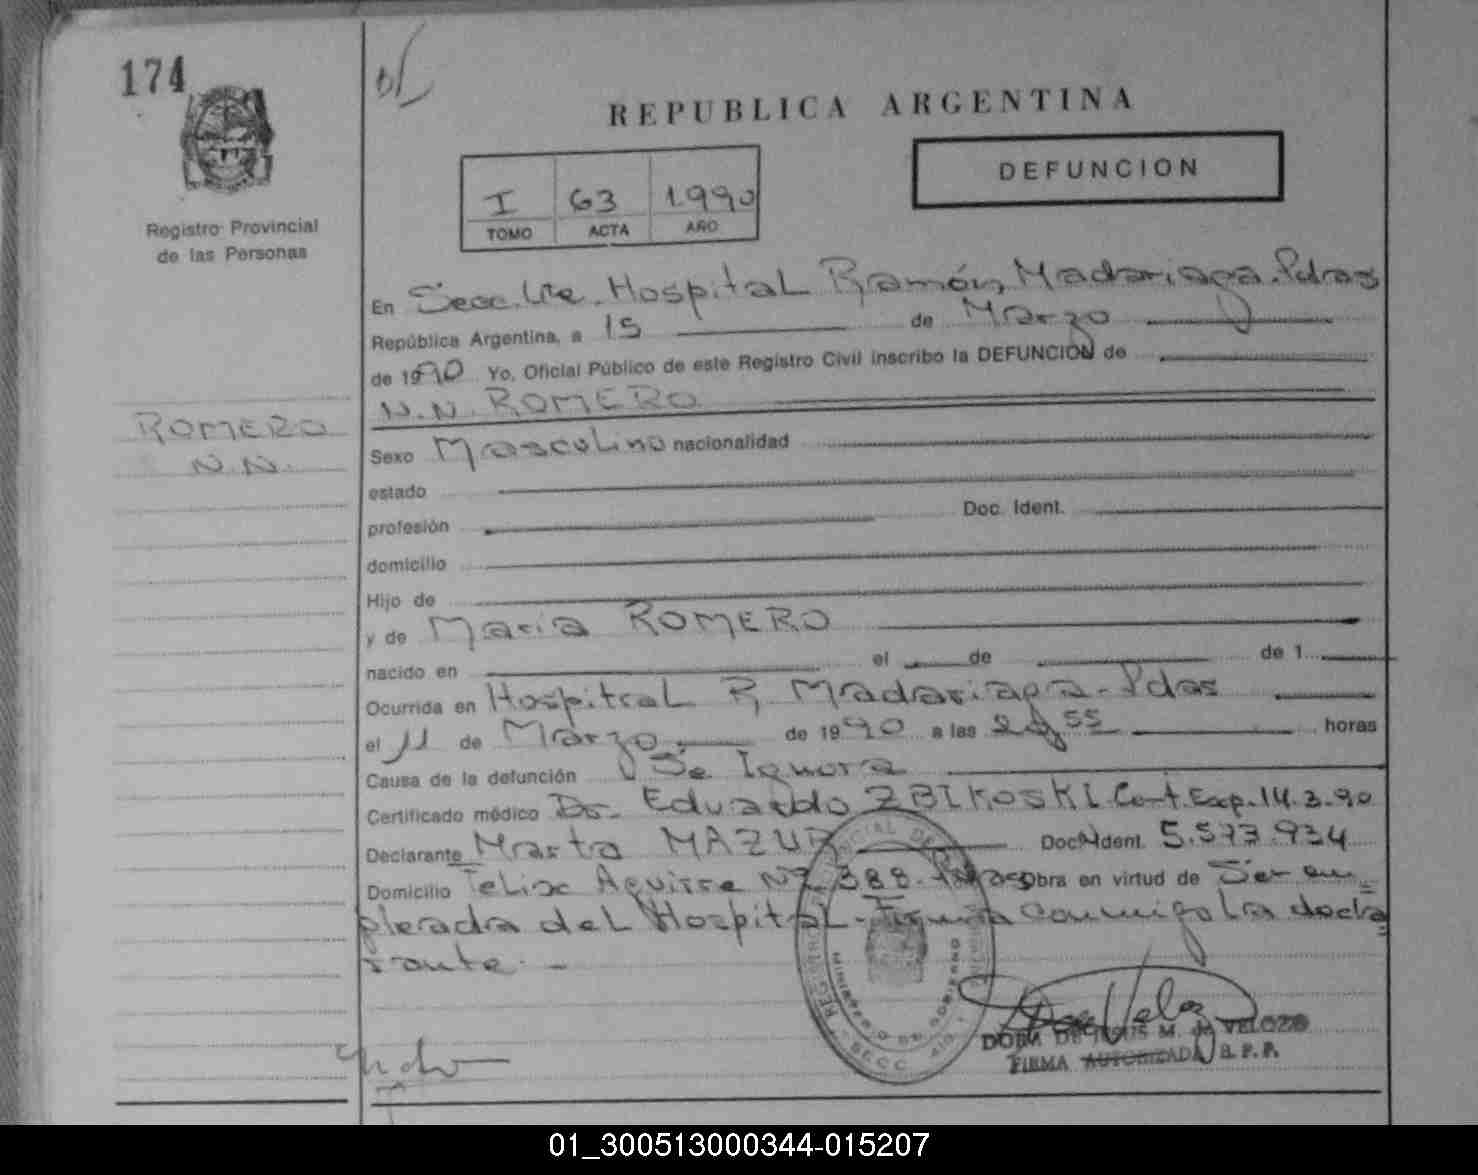 174
REPUBLICA ARGENTINA
DEFUNCION
I 63 1.990
TOMO ACTA AÑO
Registro Provincial
de las Personas
En Secc. Hospital Ramón Madariaga. Pdas
República Argentina, a 15 de Marzo
de 1990 Yo, Oficial Público de este Registro Civil inscribo la DEFUNCION de
N.N. ROMERO
ROMERO
N.N.
Sexo Masculino nacionalidad
estado
profesión Doc. Ident.
domicilio
Hijo de
y de Maria ROMERO
nacido en el de de 1
Ocurrida en Hospital R. Madariaga - Pdas
el 11 de Marzo de 1990 a las 55 horas
Causa de la defunción Se Ignora
Certificado médico Dr. Eduardo ZBIKOSKI. Cert. Exp. 14.3.90
Declarante Marta MAZUR Doc. Ident. 5.573.934
Domicilio Felix Aguirre Nº 388 - Pdas Obra en virtud de Ser em
pleada del Hospital - Firma conmigo la decla
rante. -
MINISTERIO DE GOBIERNO
DORA DE JESUS M. de VELOZO
FIRMA AUTORIZADA
01_300513000344-015207